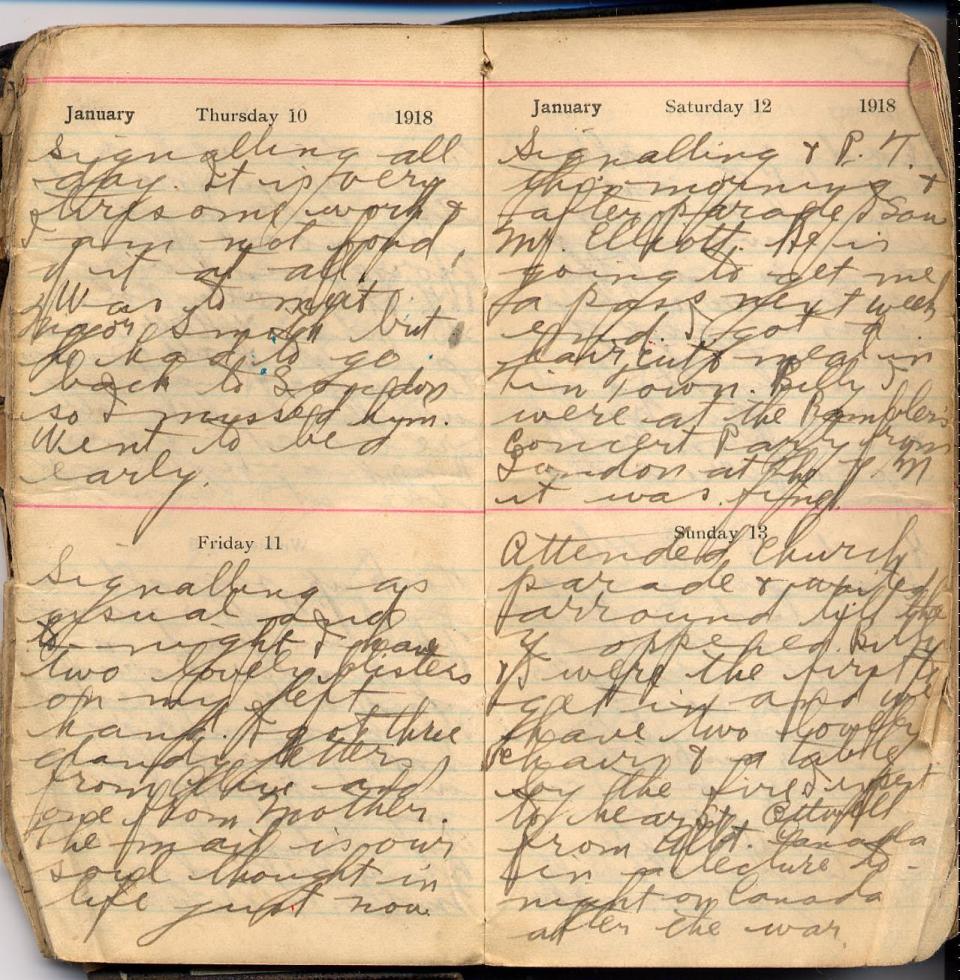 January Thursday 10 1918
signalling all
day. It is very
tiresome work &
I am not fond
of it at all.
Was to meet
Smith but
he had to go
back to London
so I myssed hym.
Went to bed
early.
Friday 11
Signalling as
usual and
to-night I have
two lovely blisters
on my left
hand. I got three
dandy letters
from Olive and
one from Mother.
The mail is our
sole thought in
life just now.
January Saturday 12 1918
Signalling & P. T.
this morning &
after parade I saw
Mr. Elliott. He is
going to get me
a pass next week
end. I got a
haircut & meal in
in Town. Billy & I
were at the Rambler's
Concert Party from
London at the Y M
it was fine.
Sunday 13
Attended Church
parade & waited
arround till the
Y oppened. Billy
& I were the first to
get in and we
have two lovely
chairs & a table
by the fire. I went
to hear
from Albt. Canada
in a lecture to-
night on Canada
after the war.